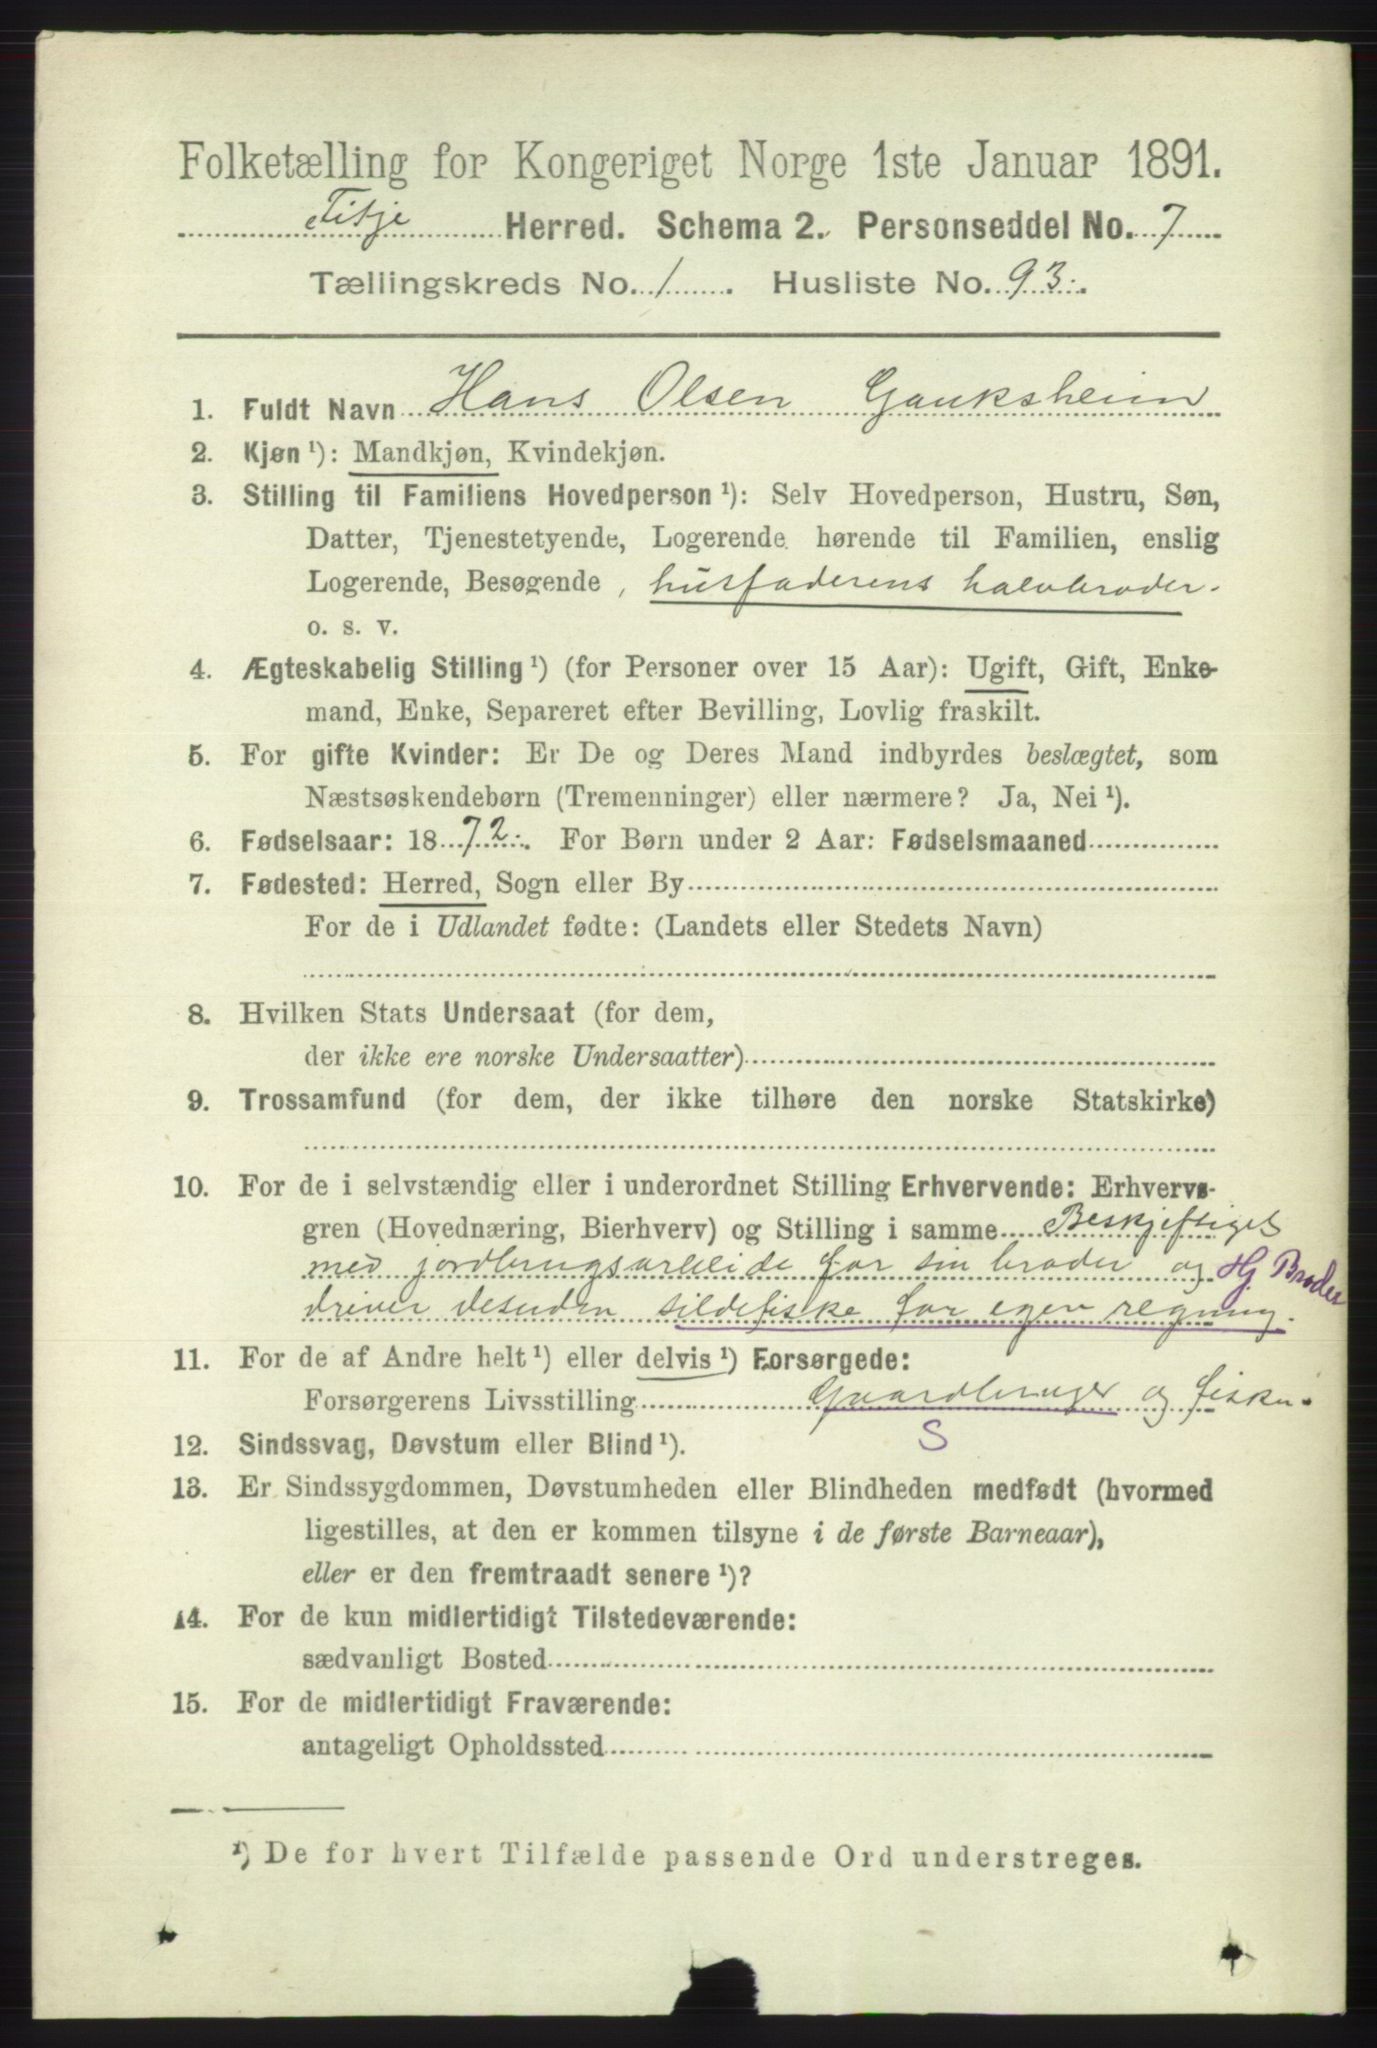 Folketælling for Kongeriget Norge 1ste Januar 1891.
Fitje Herred. Schema 2. Personseddel No. 7
Tællingskreds No. 1. Husliste No. 93.
1. Fuldt Navn Hans Olsen Gauksheim
2. Kjøn ¹): Mandkjøn, Kvindekjøn.
3. Stilling til Familiens Hovedperson ¹): Selv Hovedperson, Hustru, Søn,
Datter, Tjenestetyende, Logerende hørende til Familien, enslig
Logerende, Besøgende, husfaderens halvbroder.
o. s. v.
4. Ægteskabelig Stilling ¹) (for Personer over 15 Aar): Ugift, Gift, Enke-
mand, Enke, Separeret efter Bevilling, Lovlig fraskilt.
5. For gifte Kvinder: Er De og Deres Mand indbyrdes beslægtet, som
Næstsøskendebørn (Tremenninger) eller nærmere? Ja, Nei ¹).
6. Fødselsaar: 1872. For Børn under 2 Aar: Fødselsmaaned
7. Fødested: Herred, Sogn eller By
For de i Udlandet fødte: (Landets eller Stedets Navn)
8. Hvilken Stats Undersaat (for dem,
der ikke ere norske Undersaatter)
9. Trossamfund (for dem, der ikke tilhøre den norske Statskirke)
10. For de i selvstændig eller i underordnet Stilling Erhvervende: Erhvervs-
gren (Hovednæring, Bierhverv) og Stilling i samme Beskjeftiget
med jordbrugsarbeide for sin broder og Hj. Broder
driver desuden sildefiske for egen regning.
11. For de af Andre helt ¹) eller delvis ¹) Forsørgede:
Forsørgerens Livsstilling Gaardbruger og fisker.
12. Sindssvag, Døvstum eller Blind ¹). S
13. Er Sindssygdommen, Døvstumheden eller Blindheden medfødt (hvormed
ligestilles, at den er kommen tilsyne i de første Barneaar),
eller er den fremtraadt senere ¹)?
14. For de kun midlertidigt Tilstedeværende:
sædvanligt Bosted
15. For de midlertidigt Fraværende:
antageligt Opholdssted
¹) De for hvert Tilfælde passende Ord understreges.